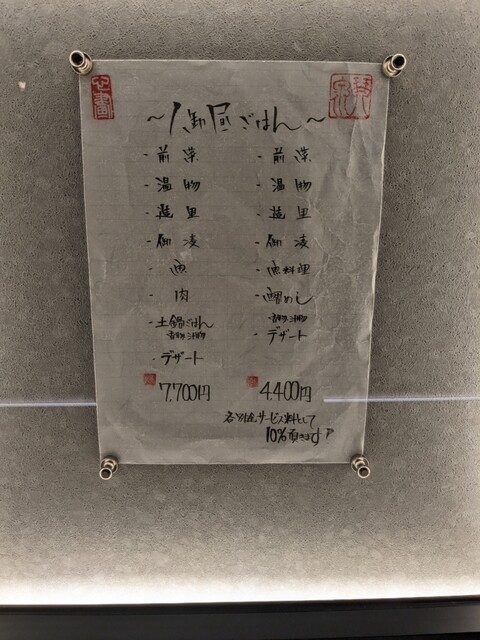 ~御昼ごはん~
・前菜
・温物
・造里
・御凌
・魚
・肉
・土鍋ごはん
香物 汁物
・デザート
7,700円
・前菜
・温物
・造里
・御凌
・魚料理
・鯛めし
香物 汁物
・デザート
4,400円
サービス料として
10%頂きます